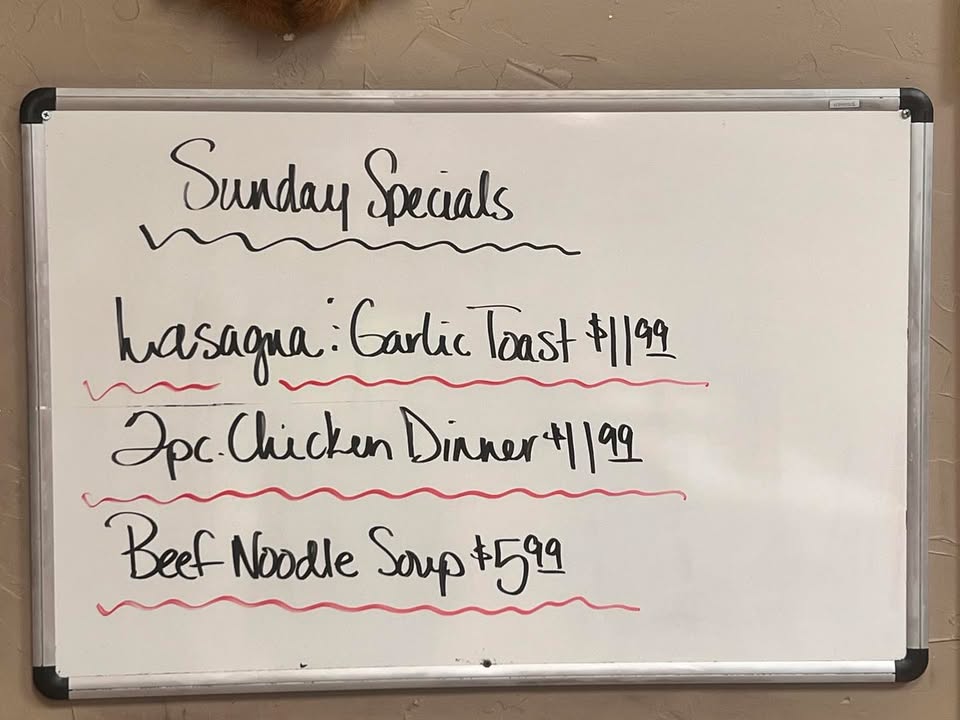 Sunday Specials
Lasagna : Garlic Toast $11 99
2pc. Chicken Dinner $11 99
Beef Noodle Soup $5 99